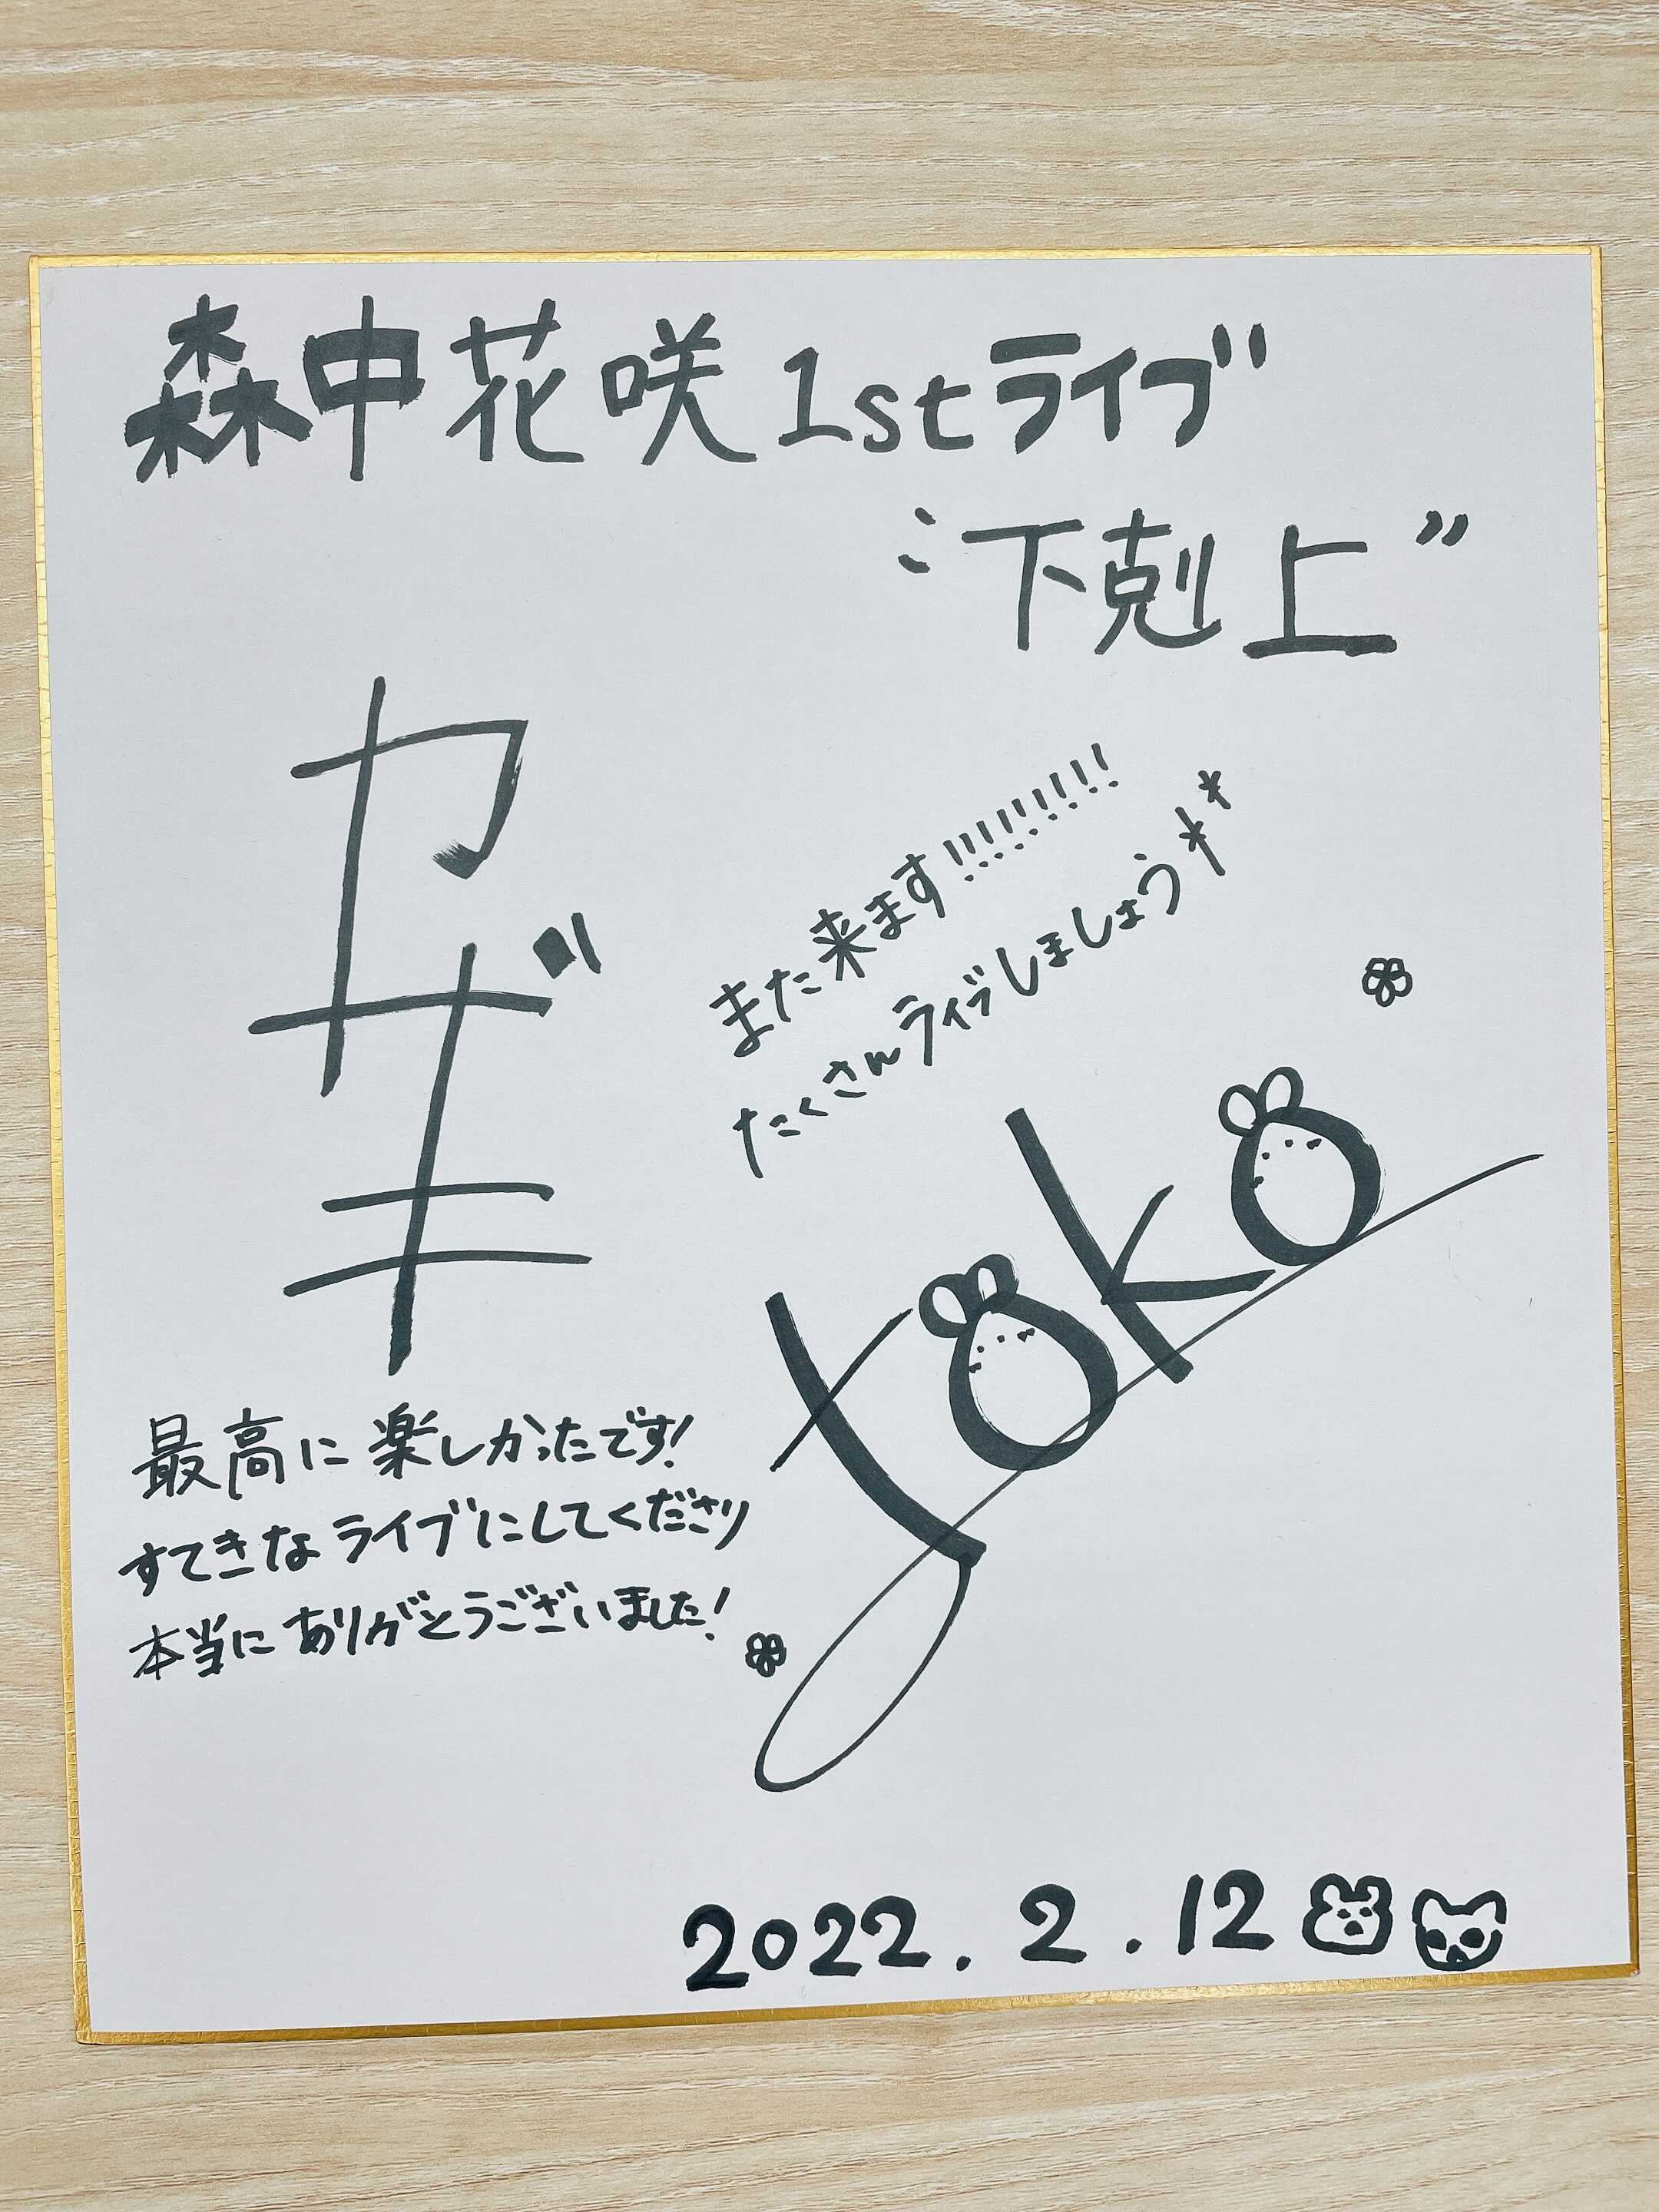 森中花咲1stライブ
“下剋上”
カザキ
また来ます!!!!!!!!!
たくさんライブしましょう
toko
最高に楽しかったです!
すてきなライブにしてくださり
本当にありがとうございました!
2022.2.12